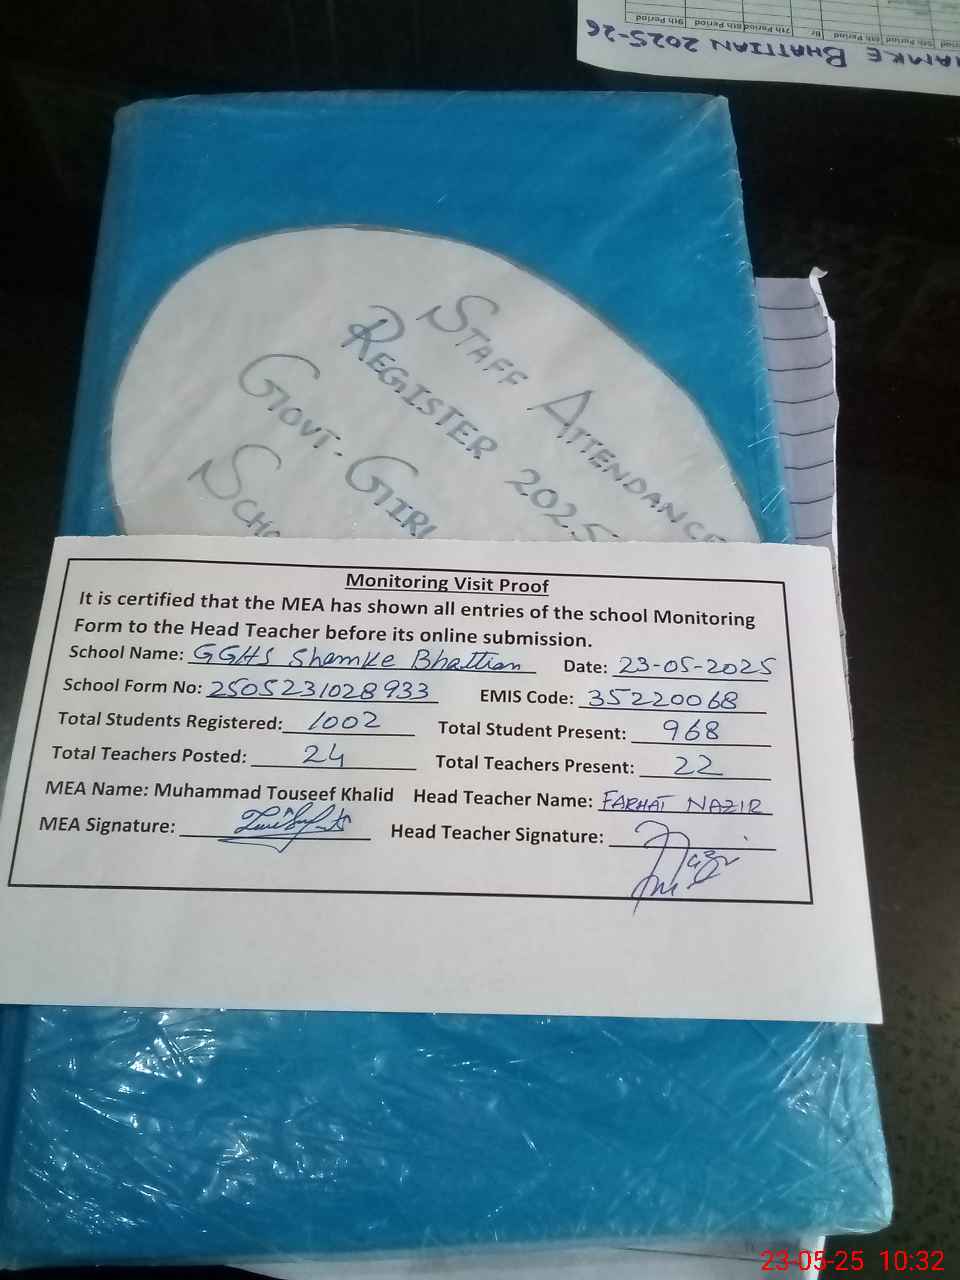 HAMKE BHATTIAN 2025-26
5th Period 6th Period Br 7th Period 8th Period 9th Period
STAFF ATTENDANCE
REGISTER 2025
GOVT. GIRL
SCHO
Monitoring Visit Proof
It is certified that the MEA has shown all entries of the school Monitoring
Form to the Head Teacher before its online submission.
School Name: GGHS Shamke Bhattian Date: 23-05-2025
School Form No: 2505231028933 EMIS Code: 35220068
Total Students Registered: 1002 Total Student Present: 968
Total Teachers Posted: 24 Total Teachers Present: 22
MEA Name: Muhammad Touseef Khalid Head Teacher Name: FARHAT NAZIR
MEA Signature: Head Teacher Signature:
23-05-25 10:32